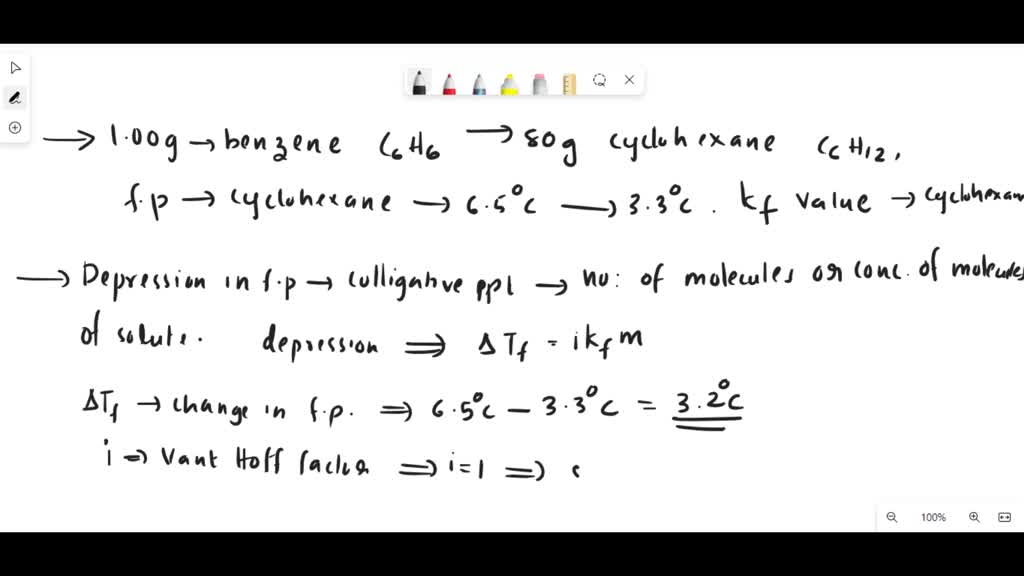 → 1.00g → benzene C6H6 → 80g cyclohexane C6H12,
f.p → cyclohexane → 6.5°c → 3.3°c . kf value → cyclohexan
→ Depression in f.p → colligative ppt → no: of molecules or conc. of molecules
of solute. depression ⟹ ΔTf = i kf m
ΔTf → change in f.p. ⟹ 6.5°c - 3.3°c = 3.2°c
i → Vant Hoff factor ⟹ i=1 ⟹
100%